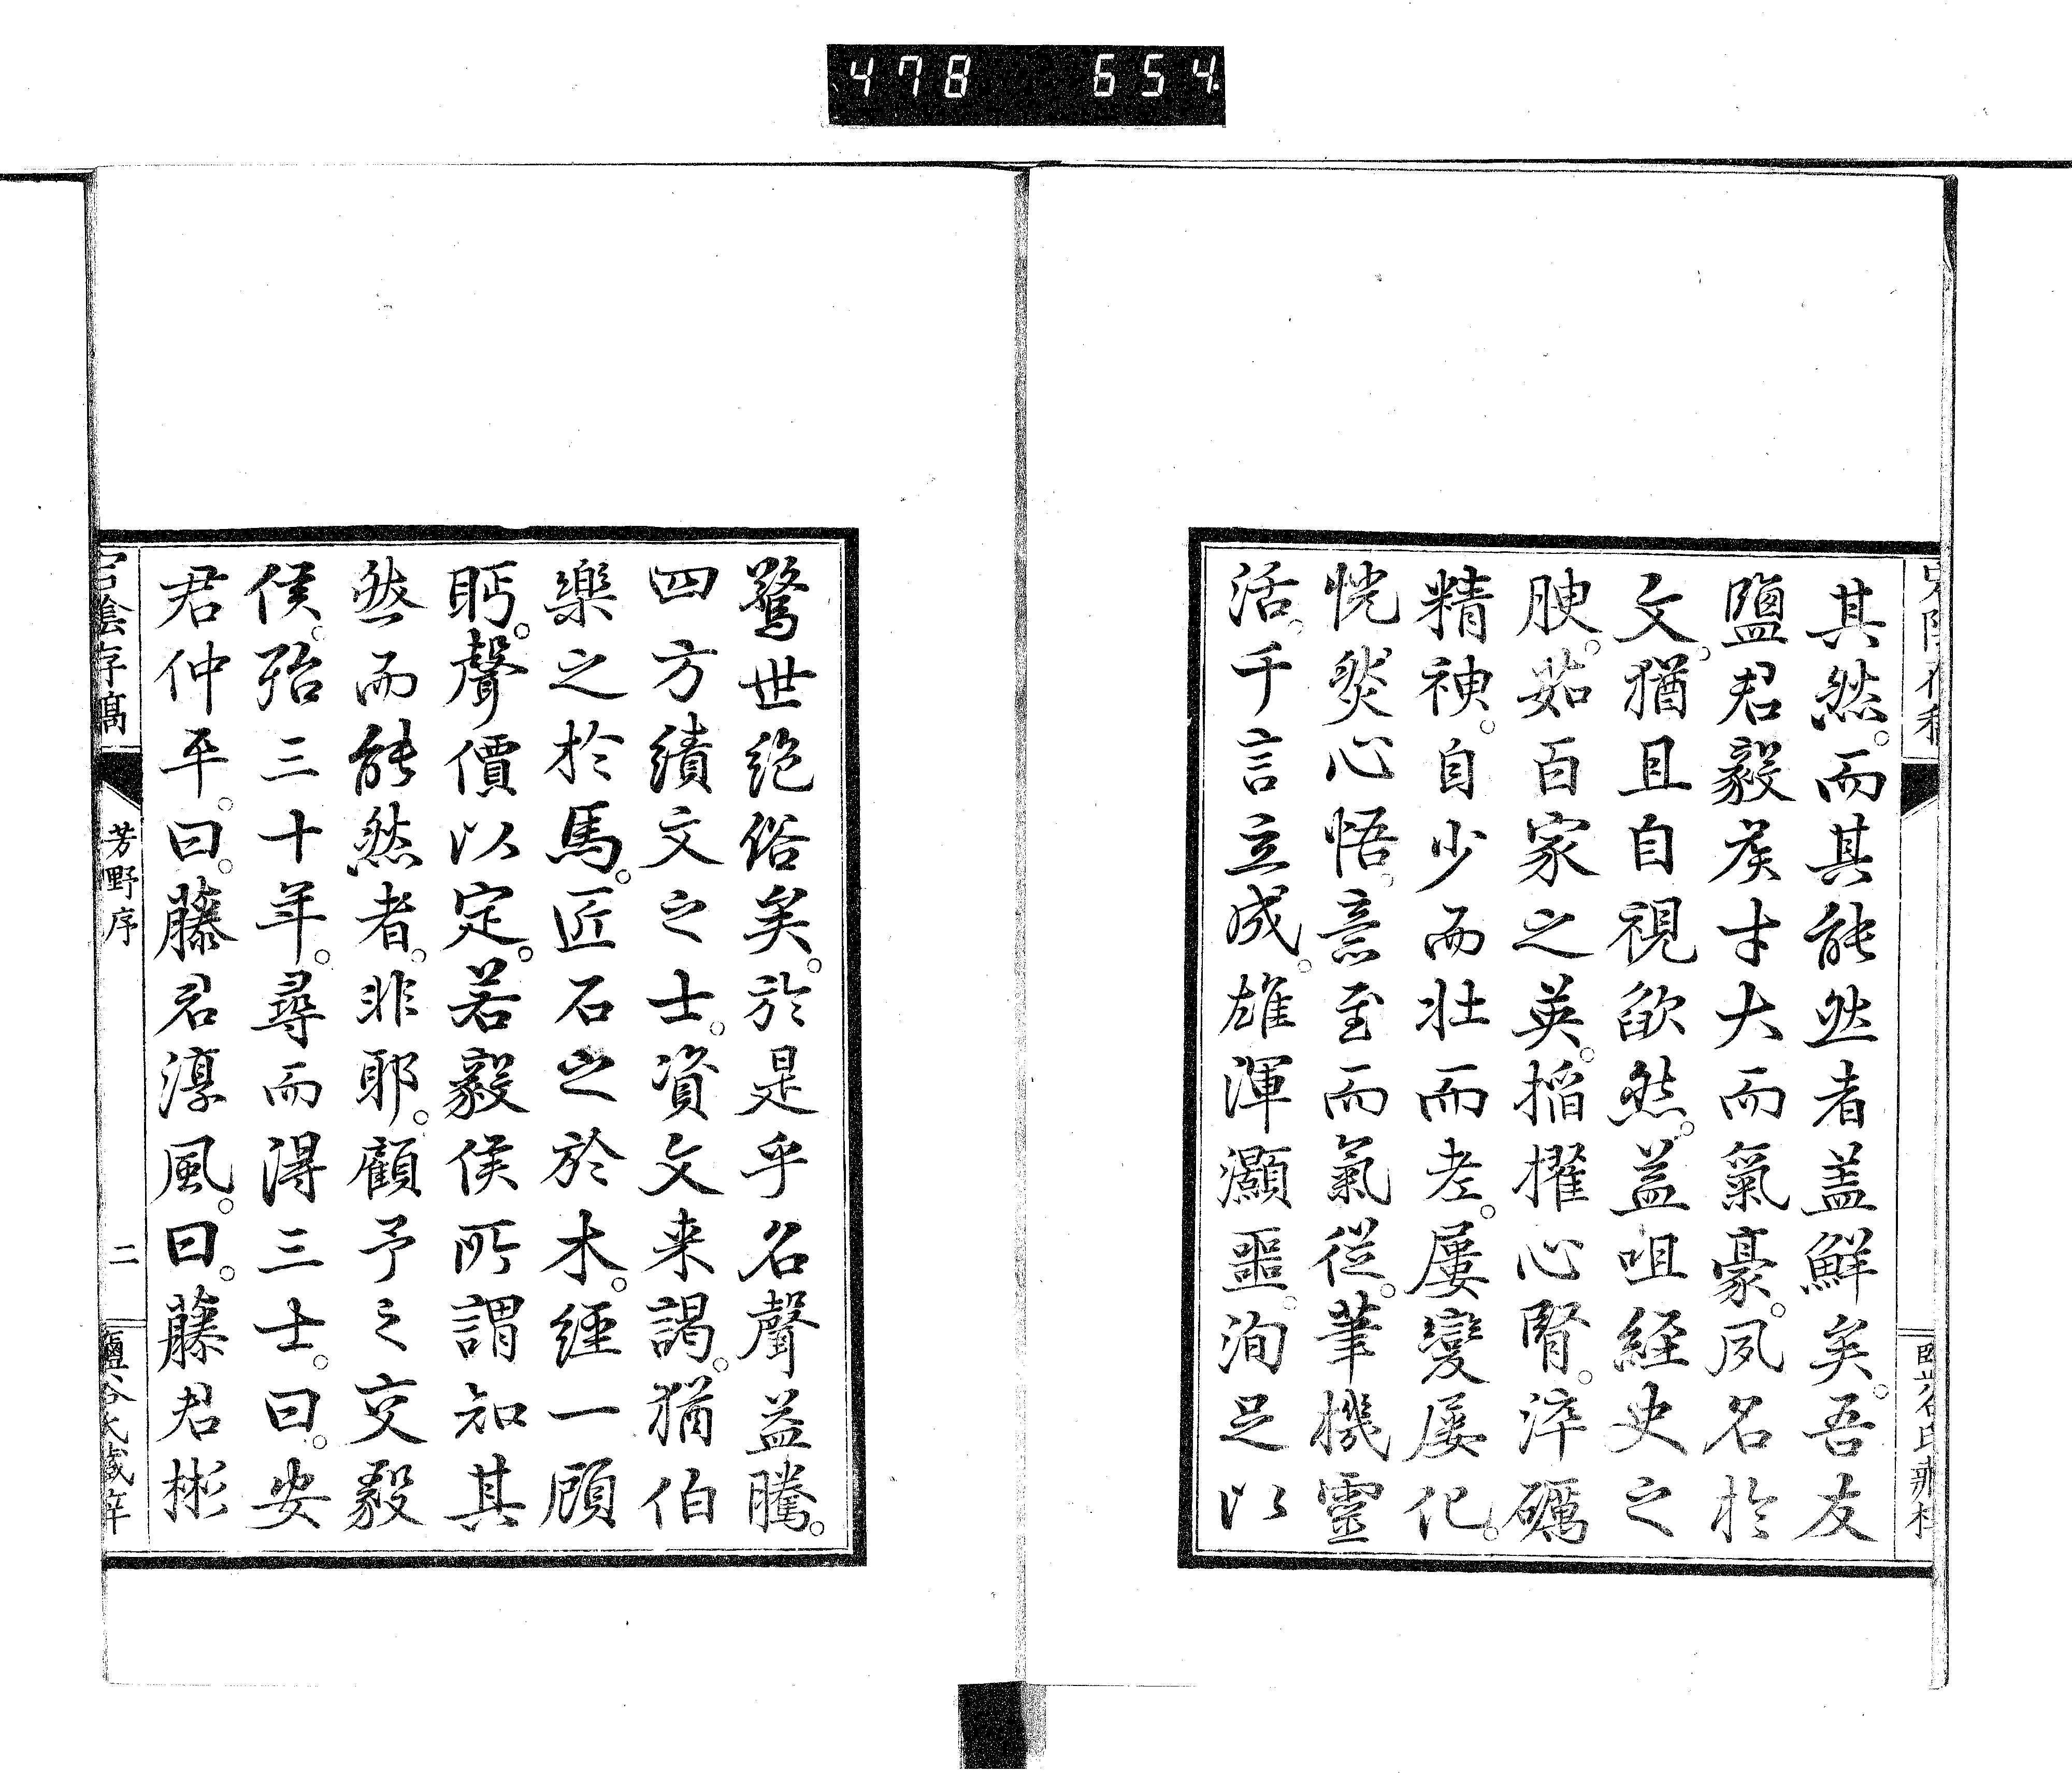 478 654
其然。而其能然者盖鮮矣。吾友
鹽君毅侯才大而氣豪。夙名於
文。猶且自視欿然。盖咀經史之
腴。茹百家之英。搯擢心腎。淬礪
精神。自少而壯而老。屢變屢化。
恍然心悟。意至而氣從。筆機靈
活。千言立成。雄渾灝噩。洵足以
驚世絶俗矣。於是乎名聲益騰。
四方績文之士。資文来謁。猶伯
樂之於馬。匠石之於木。經一顧
眄。聲價以定。若毅侯所謂知其
然而能然者。非耶。顧予之交毅
侯。殆三十年。尋而得三士。曰。安
君仲平。曰。藤君淳風。曰。藤君彬
宕陰存稿
芳野序
二
鹽谷氏藏梓